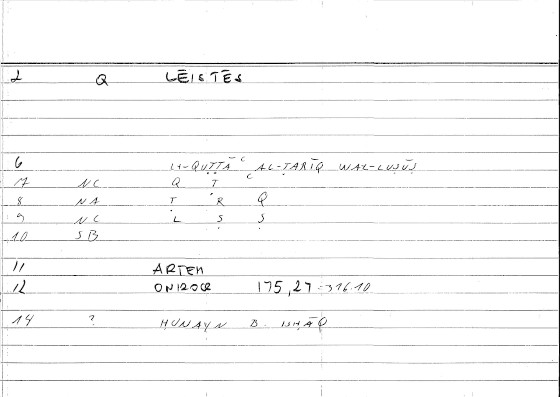 2 Q LĒISTĒS
6 LI-QUṬṬĀʿ AL-ṬARĪQ WAL-LUṢŪṢ
7 NC Q Ṭ ʿ
8 NA Ṭ R Q
9 NC L Ṣ Ṣ
10 SB
11 ARTEM
12 ONIROCR 175,27 - 316.10
14 ? HUNAYN B. ISHĀQ